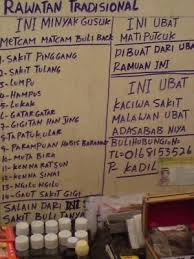 RAWATAN TRADISIONAL
INI MINYAK GUSUK
METCAM MATCAM BULI BACK
1- SAKIT PINGGANG
2- SAKIT TULANG
3- LUMPU
4- HAMPUS
5- LUKAK
6- GATAR GATAR
7- GIGITAN HANJING
8- TAPATUKULAR
9- PARAMPUAN HOBIS BARANAK
10- MUTA BIRA
11- KENNA RATSON
12- KENNA SINAI
13- NGILU NGILU
14- GAUT SAKIT GIGI
SALAIN DARI INI
SAKIT BULI TANYA
INI UBAT
MATI PUTCUK
DIBUAT DARI UBAT
RAMUAN INI
INI UBAT
KACIWA SAKIT
MALAWAN UBAT
ADASABAB NYA
BULIHUBUNGIN
TL=0168153526
P- KADIL